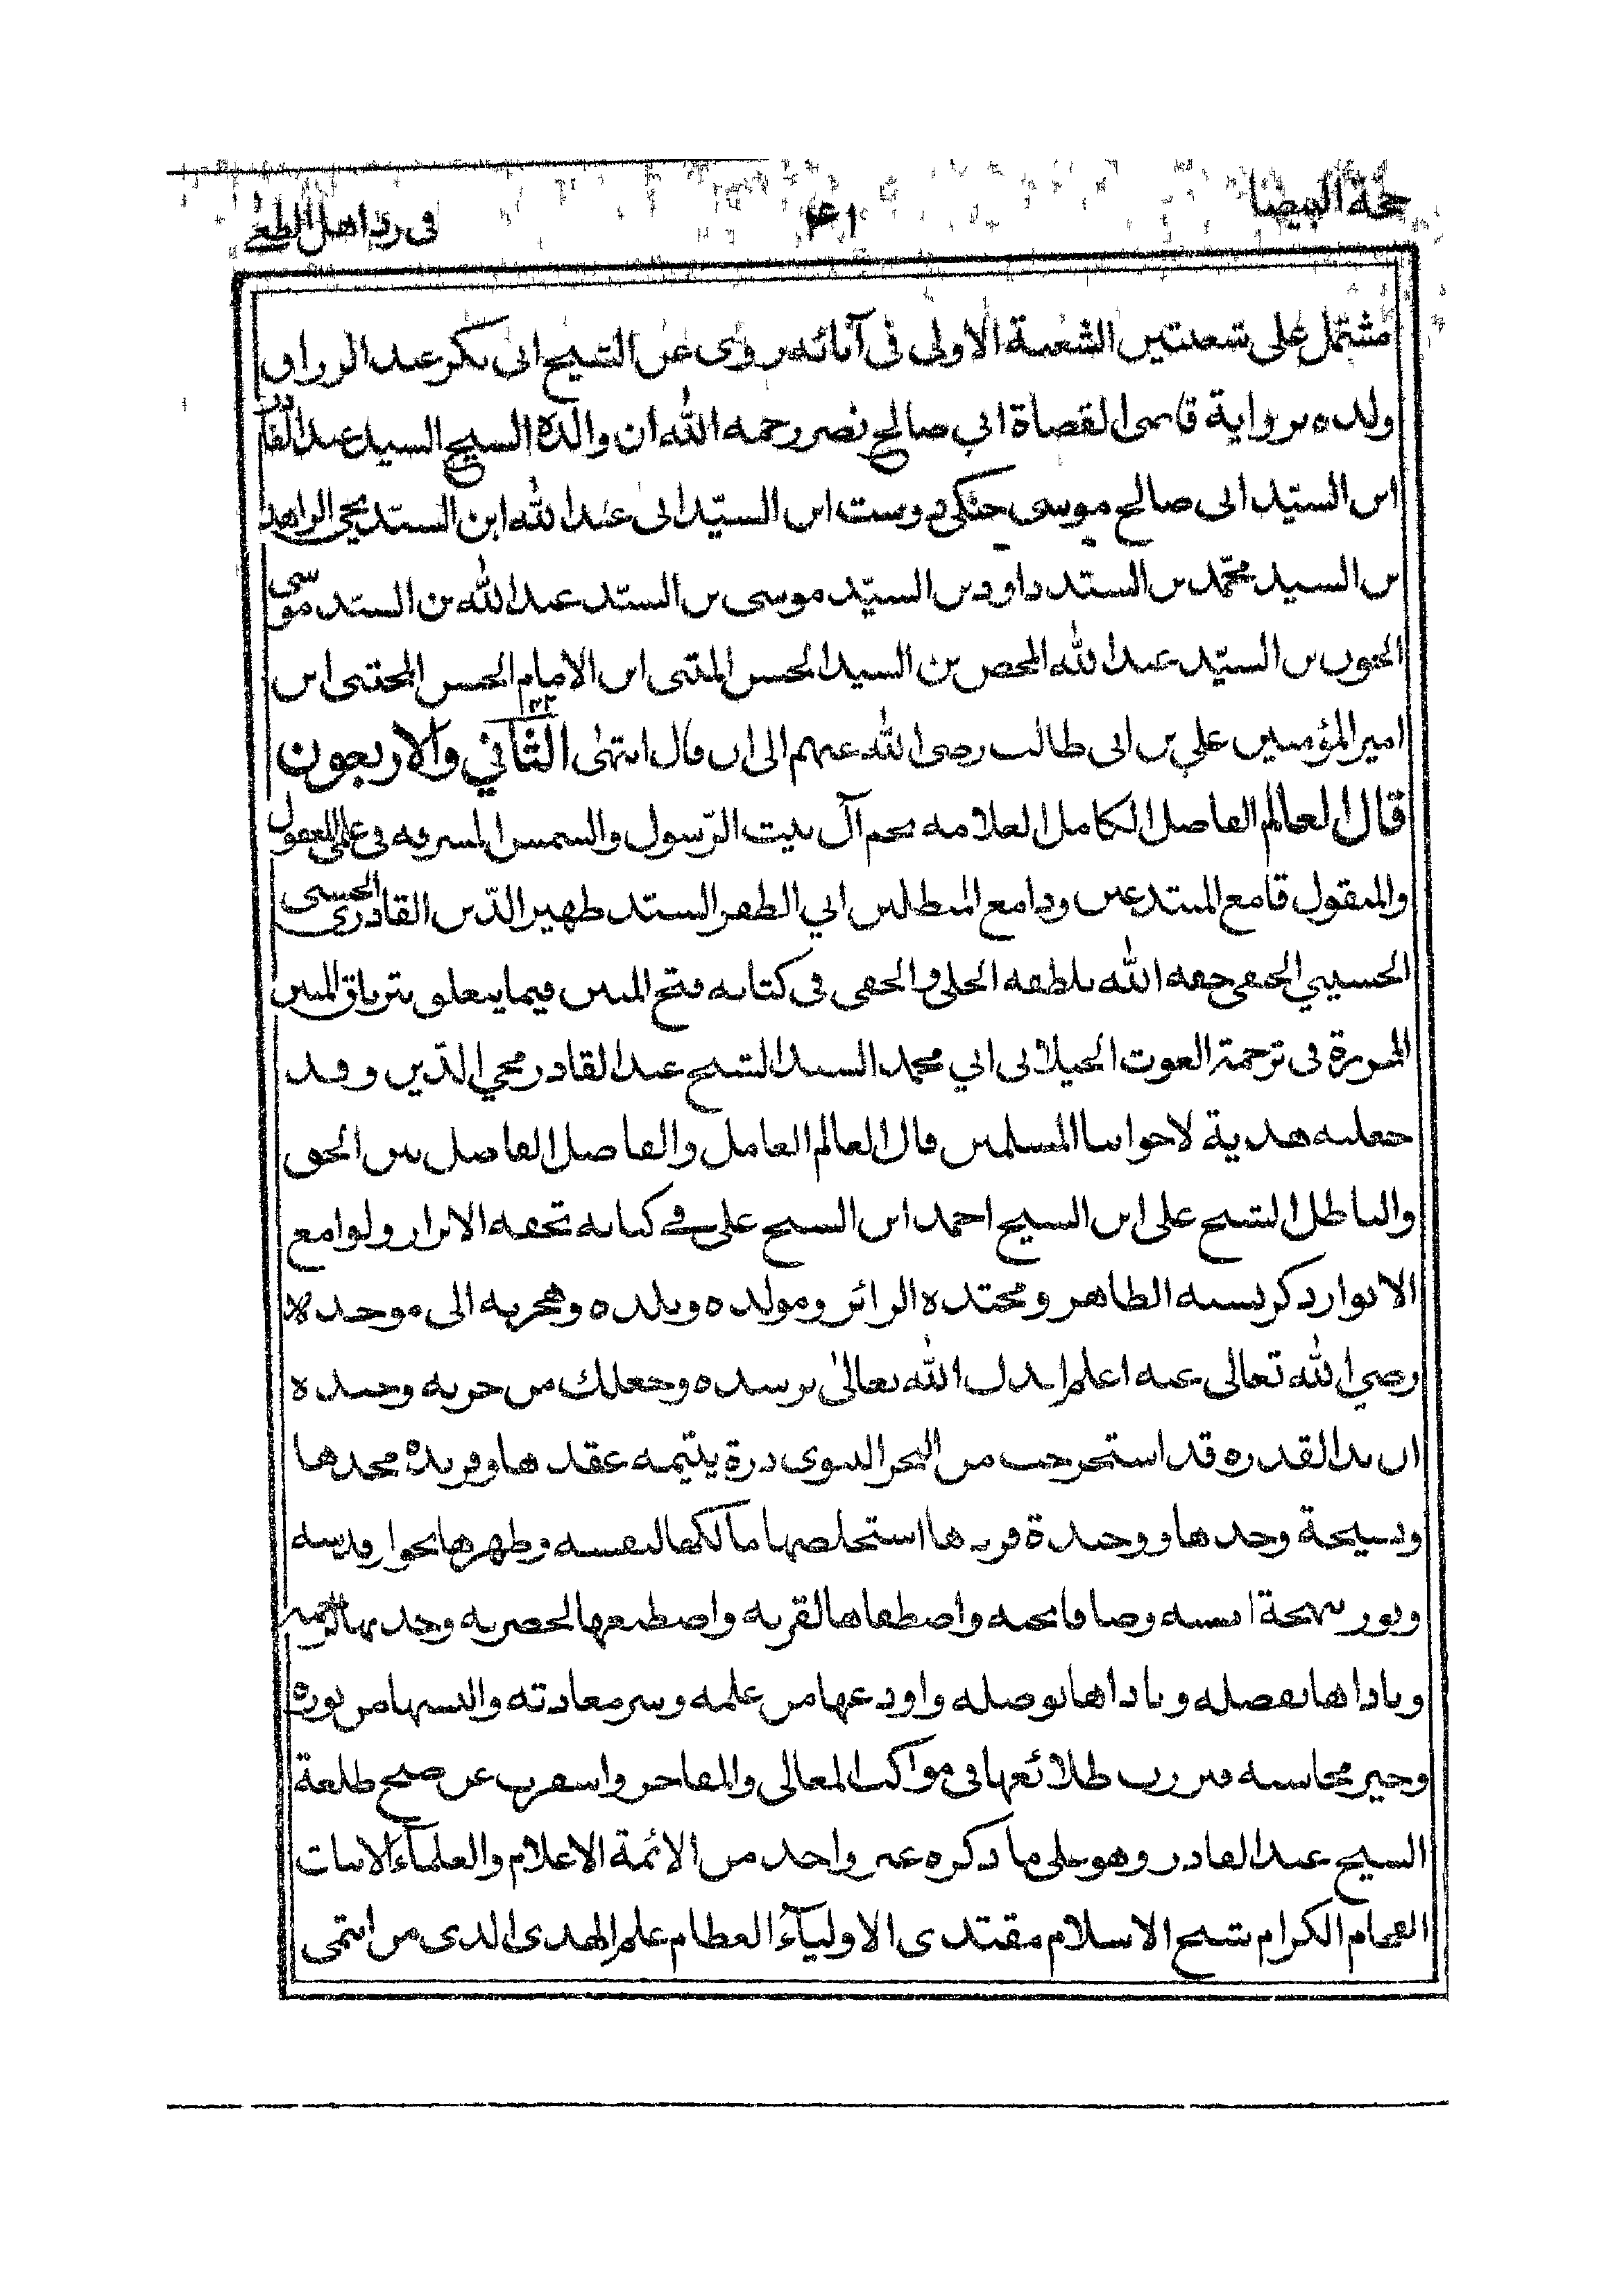 حجة البيضا ٤١ فى رد اهل الطغى
مشتمل على شعبتين الشعبة الاولى فى آبائه روى عن الشيخ ابى بكر عبد الرزاق
ولده برواية قاضى القضاة ابي صالح نصر رحمه الله ان والده الشيخ السيد عبد القادر
ابن السيّد ابى صالح موسى جنكى دوست ابن السيّد ابى عبد الله ابن السيّد يحيى الزاهد
بن السيد محمّد بن السيّد داود بن السيّد موسى بن السيّد عبد الله بن السيّد موسى
الجون بن السيّد عبد الله المحض بن السيد الحسن المثنى ابن الامام الحسن المجتبى ابن
امير المؤمنين علي بن ابى طالب رضى الله عنهم الى ان قال انتهى الثاني والاربعون ٤٢
قال العالم الفاضل الكامل العلامه نجم آل بيت الرّسول والشمس المشرقه فى علمى المعقول
والمنقول قامع المبتدعين ودامع المبطلين ابي الظفر السيّد ظهير الدّين القادرى الحسنى
الحسيني الحنفى حفه الله بلطفه الجلى والخفى فى كتابه فتح المبين فيما يتعلق بترياق المحبين
المحررة فى ترجمة الغوث الجيلانى ابي محمد السيد الشيخ عبد القادر محي الدّين وقد
جعلته هدية لاخواننا المسلمين قال العالم العامل والفاضل الفاصل بين الحق
والباطل الشيخ على ابن الشيخ احمد ابن الشيخ على في كتابه تحفه الابرار ولوامع
الانوار ذكر نسبه الطاهر ومحتده الزائر ومولده وبلده وهجرته الى موحده
رضي الله تعالى عنه اعلم الله تعالى برشده وجعلك من حزبه وجنده
ان يد القدره قد استخرجت من البحر النبوى درة يتيمه عقدها وفريدة مجدها
ونسيجة وحدها ووحيدة استخلصها مالكها لنفسه وطهرها بجوار قدسه
وبور واصطفاها لقربه واصطنعها لحضرته
وناداها بفضله وباداها بوصله واودعها من علمه وسر معادته والبسها من نوره
محاسنه فبرزت طلائعها فى مواكب المعالى والمفاخر واسفرت عن صبح طلعة
الشيخ عبد القادر وهو على ما ذكره غير واحد من الائمة الاعلام والعلمآء الاثبات
الفخام الكرام شيخ الاسلام مقتدى الاوليآء العظام علم الهدى الذى من انتمى